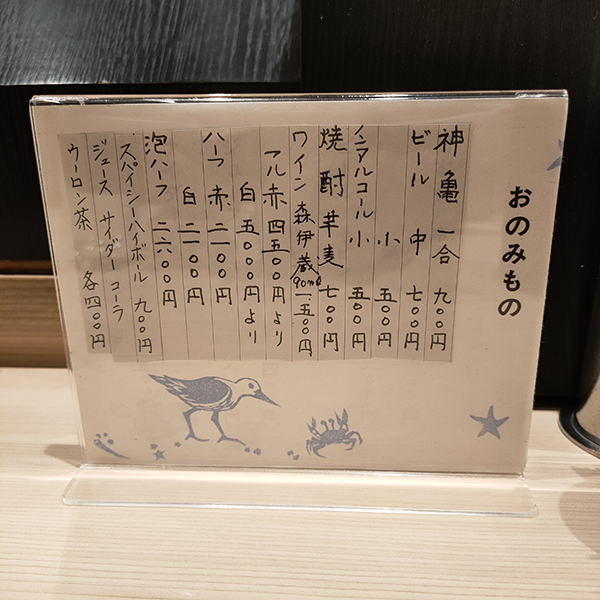 おのみもの
神亀 一合 九〇〇円
ビール 中 七〇〇円
小 五〇〇円
ノンアルコール 小 五〇〇円
焼酎 芋 麦 七〇〇円
森伊蔵 90ml 一、五〇〇円
ワイン
フル 赤 四五〇〇円 より
白 五〇〇〇円 より
ハーフ 赤 二一〇〇円
白 二一〇〇円
泡ハーフ 二二六〇〇円
スパイシーハイボール 九〇〇円
ジュース サイダー コーラ
ウーロン茶 各四〇〇円